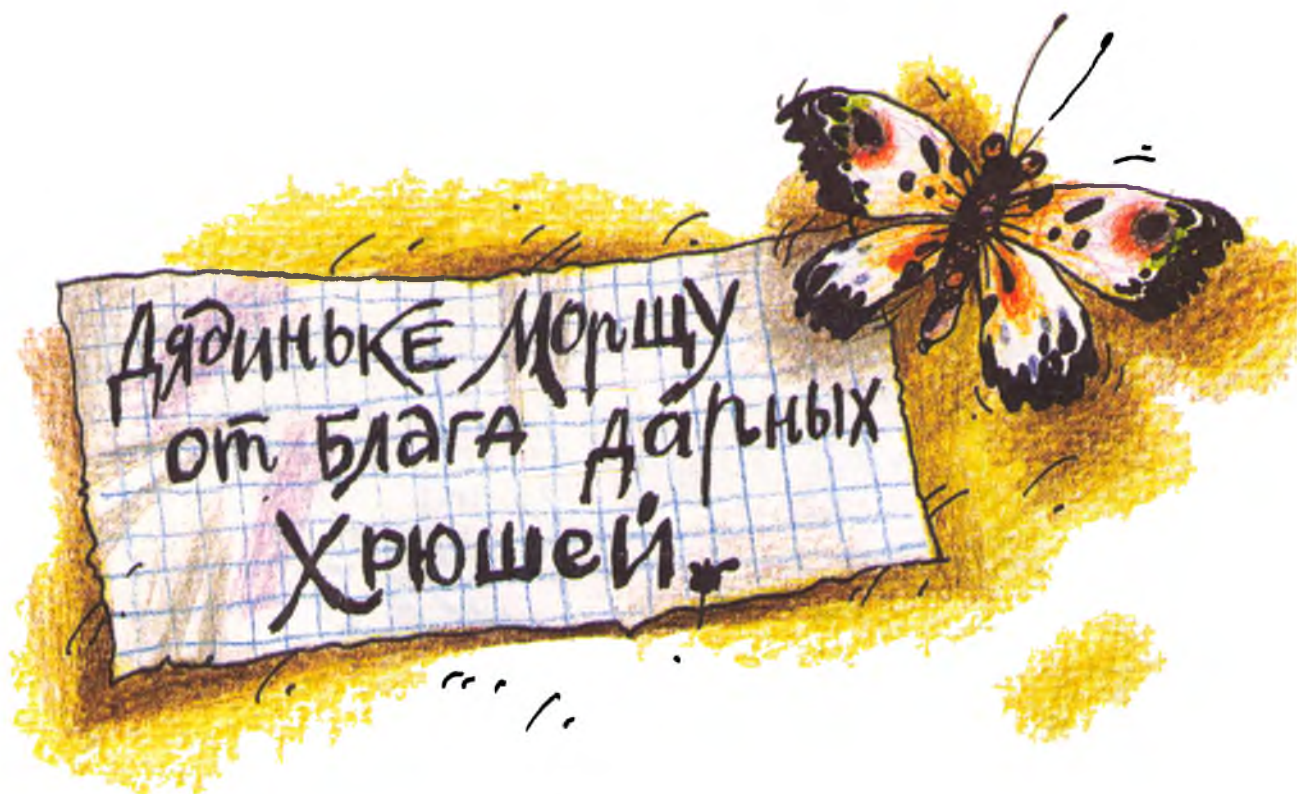 Дядиньке Моpщу
от Блага дарных
Хрюшей.